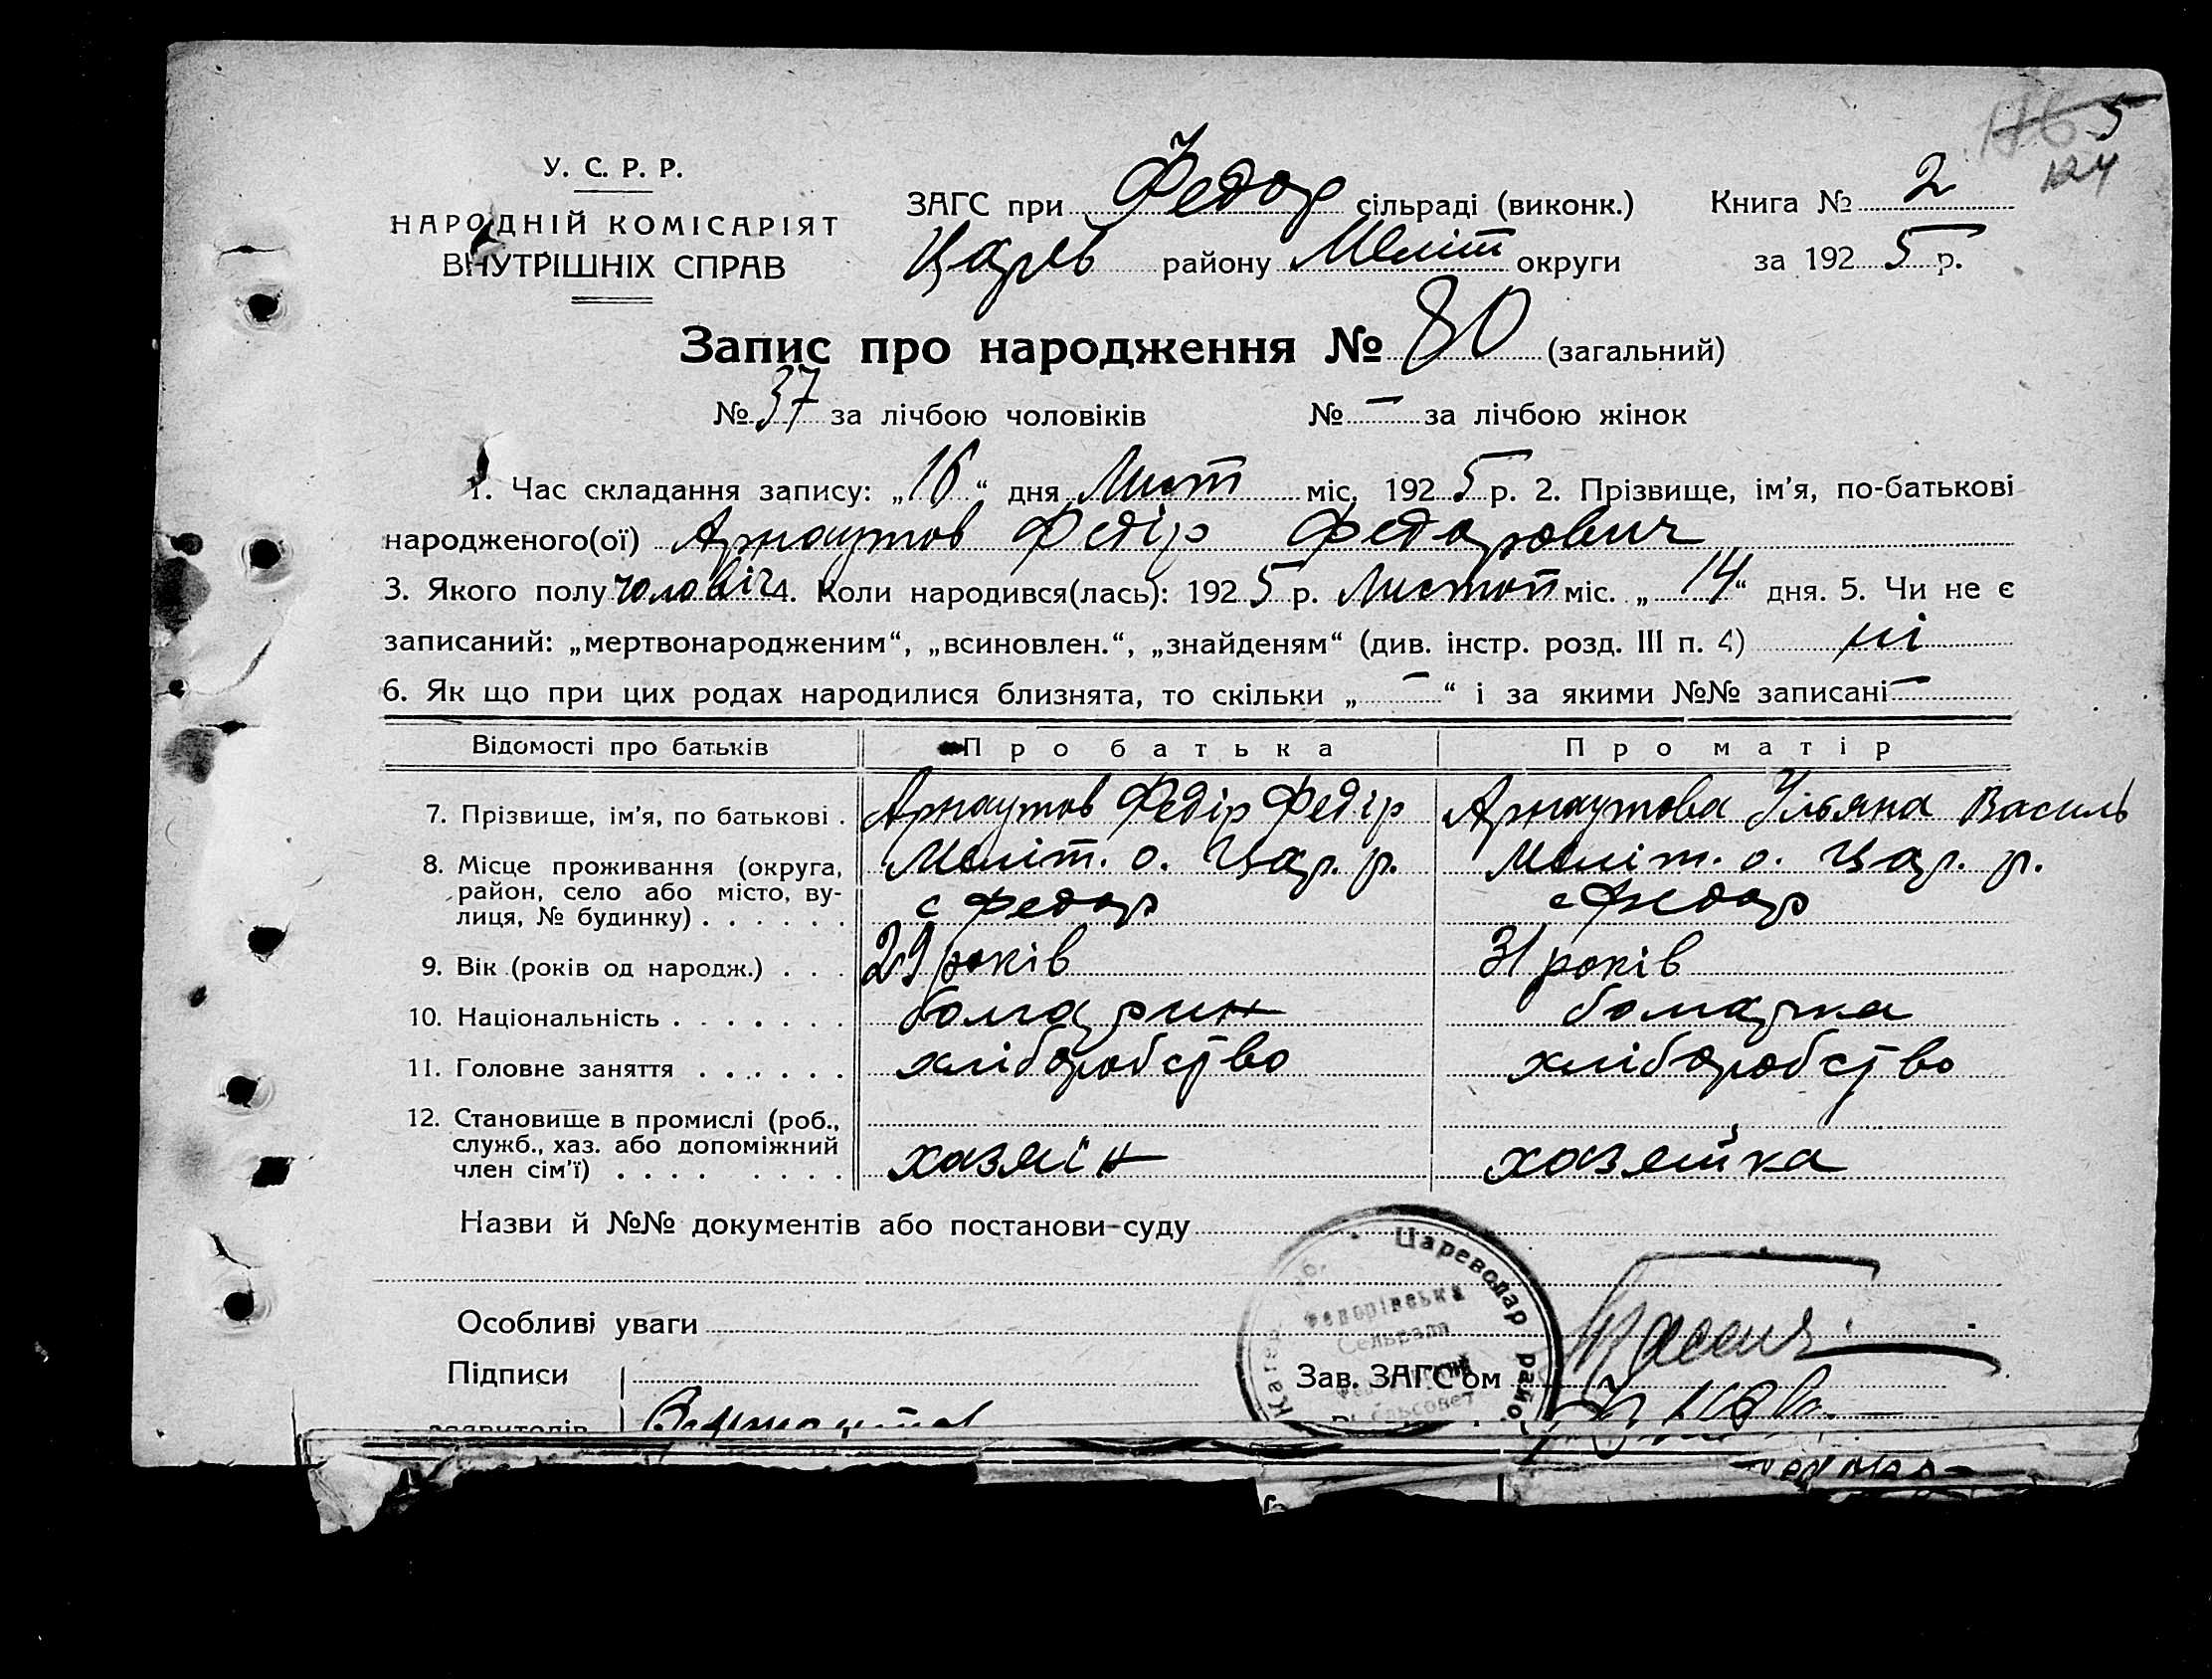 5
124
У. С. Р. Р.
НАРОДНІЙ КОМІСАРІЯТ
ВНУТРІШНІХ СПРАВ
ЗАГС при Федор сільраді (виконк.)
Царев району Меліт округи
Книга № 2
за 1925 р.
Запис про народження № 80 (загальний)
№ 37 за лічбою чоловіків № — за лічбою жінок
1. Час складання запису: „16“ дня Лист міс. 1925 р. 2. Прізвище, ім'я, по-батькові
народженого(ої) Арнаутов Федір Федорович
3. Якого полу чоловіч 4. Коли народився(лась): 1925 р. Листоп міс. „14“ дня. 5. Чи не є
записаний: „мертвонародженим“, „всиновлен.“, „знайденям“ (див. інстр. розд. III п. 4) ні
6. Як що при цих родах народилися близнята, то скільки „—“ і за якими №№ записані —
Відомості про батьків Про батька Про матір
7. Прізвище, ім'я, по батькові . Арнаутов Федір Федір Арнаутова Уляна Василь
8. Місце проживання (округа, район, село або місто, вулиця, № будинку) . . . . . .
Меліт. о. Цар. р. Меліт. о. Цар. р.
с Федор с Федор
9. Вік (років од народж.) . . . 29 років 31 років
10. Національність . . . . . . . болгарин болгарка
11. Головне заняття . . . . . . хліборобство хліборобство
12. Становище в промислі (роб., служб., хаз. або допоміжний член сім'ї) . . . . . . . .
хазяїн хазяйка
Назви й №№ документів або постанови суду
Особливі уваги
Підписи
заявителів
Зав. ЗАГС'ом
Цареводар райо
Федорівська
Сельрада
сельсовет